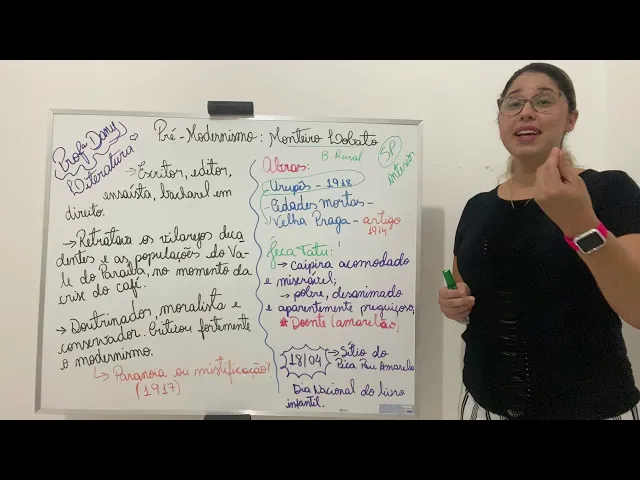 Profª Dany
Literatura
Pré-Modernismo: Monteiro Lobato
→ Escritor, editor,
ensaísta, bacharel em
direito.
→ Retratava os vilarejos deca
dentes e as populações do Va-
le do Paraíba, no momento da
crise do café.
→ Doutrinador, moralista e
conservador. Criticou fortemente
o modernismo.
↳ Paranoia ou mistificação?
(1917)
Obras:
B. Rural
SP
interior
Urupês - 1918
- Cidades Mortas -
- Velha Praga - artigo
1914
Jeca Tatu:
→ caipira acomodado
e miserável;
→ pobre, desanimado
e aparentemente preguiçoso;
* Doente (amarelão)
18/04
→ Sítio do
Pica Pau Amarelo
Dia Nacional do livro
infantil.